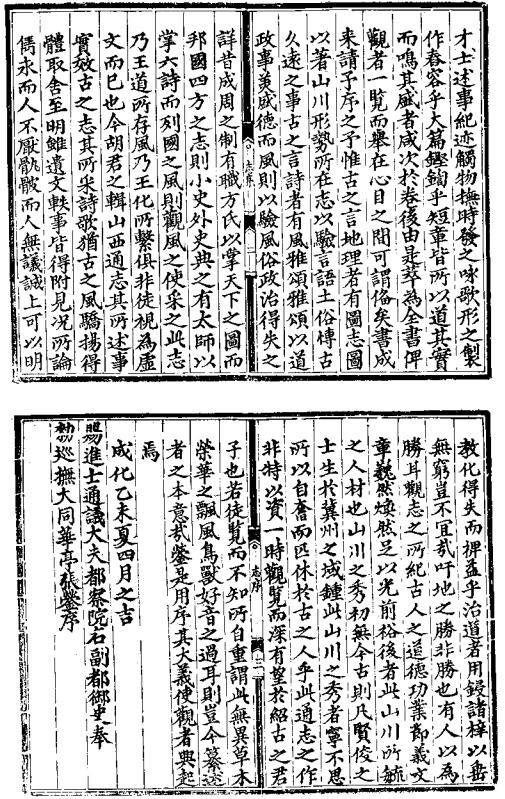 才士述事紀迹觸物撫時發之咏歌形之製
作春容乎大篇鏗鍧乎短章皆所以道其實
而鳴其盛者咸次於卷後由是萃為全書俾
觀者一覽而舉在心目之間可謂偹矣書成
來請予序之予惟古之言地理者有圖志圖
以著山川形勢所在志以驗言語土俗博古
久遠之事古之言詩者有風雅頌雅頌以道
政事美盛德而風則以驗風俗政治得失之
詳昔成周之制有職方氏以掌天下之圖而
邦國四方之志則小史外史典之有太師以
掌六詩而列國之風則觀風之使采之此志
乃王道所存風乃王化所繫俱非徒視為虛
文而已也今胡君之輯山西通志其所述事
實效古之志其所采詩歌猶古之風驕揚得
體取舍至明雖遺文軼事皆得附見况所論
雋永而人不厭骪骳而人無議誠上可以明
教化得失而裨益乎治道者用鋟諸梓以垂
無窮豈不宜哉吁地之勝非勝也有人以為
勝耳觀志之所紀古人之道德功業節義文
章巍然煥然足以光前裕後者此山川所毓
之人材也山川之秀初無今古則凡賢俊之
士生於冀州之域鍾此山川之秀者寧不思
所以自奮而匹休於古之人乎此通志之作
非特以資一時觀覽而深有望於紹古之君
子也若徒覽而不知所自重謂此無異草木
榮華之飄風鳥獸好音之過耳則豈今纂述
者之本意哉鎣是用序其大義使觀者興起
焉
成化乙未夏四月之吉
賜進士通議大夫都察院右副都御史奉
勅巡撫大同華亭張鎣序
志序
志序
二